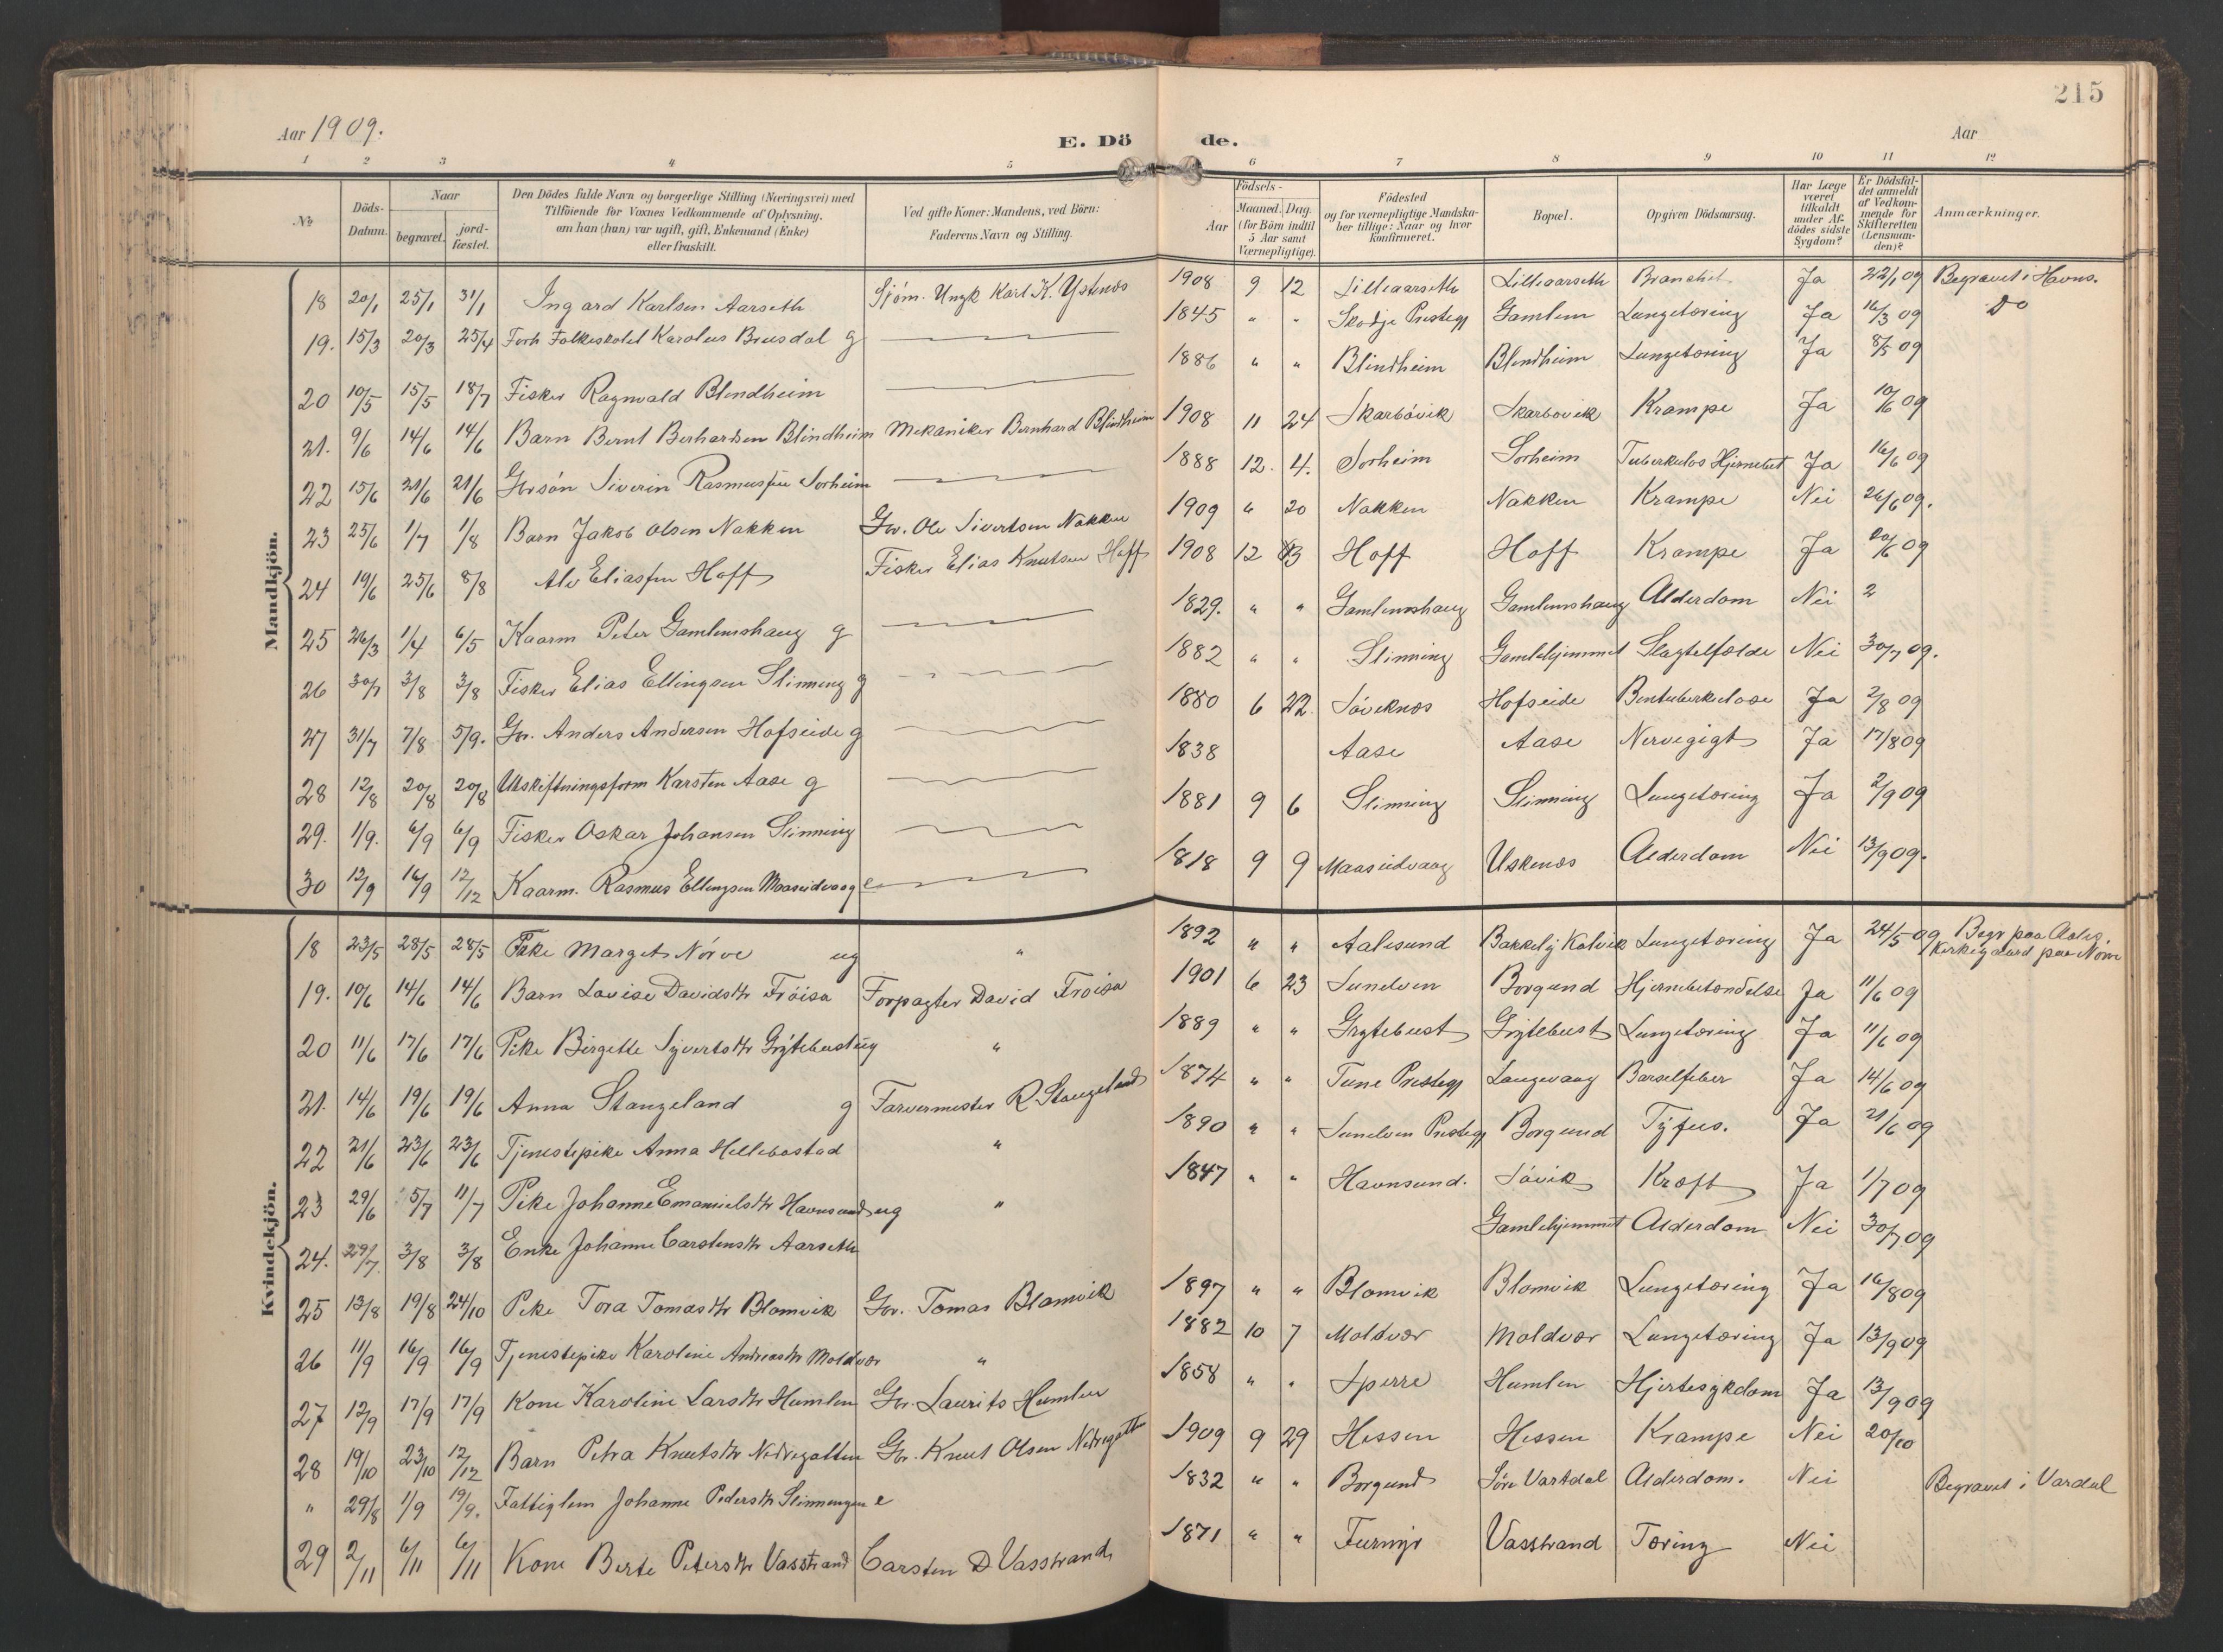 215
Aar 1909.
E. Dö de.
Aar
1 2 3 4 5 6 7 8 9 10 11 12
No
Döds-Datum.
Naar
begravet.
jord-fæstet.
Den Dödes fulde Navn og borgerlige Stilling (Næringsvei) med
Tilföiende for Voxnes Vedkommende af Oplysning.
om han (hun) var ugift, gift, Enkemand (Enke)
eller fraskilt.
Ved gifte Koner: Mandens, ved Börn:
Faderens Navn og Stilling.
Födsels-
Aar
Maaned. Dag.
(for Börn indtil
5 Aar samt
Værnepligtige).
Födested
og for værnepligtige Mandska-
ber tillige: Naar og hvor
konfirmeret.
Bopæl.
Opgiven Dödsaarsag.
Har Læge
været
tilkaldt
under Af-
dödes sidste
Sygdom?
Er Dödsfal-
det anmeldt
af Vedkom-
mende for
Skifteretten
(Lensman-
den)?
Anmærkninger.
Mandkjön.
18 20/1 25/1 31/1 Ingard Karlsen Aarseth Sjöm. Ungk Karl K. Ystenes 1908 9 12 Lilleaarseth Lilleaarseth Bronchit Ja 22/1 09 Begravet i Havns.
19. 15/3 20/3 25/4 Forh Folkeskolel Karolus Brusdal g 1845 " " Skodje Prestegj Gamlem Lungetæring Ja 16/3 09 Do
20 10/5 15/5 18/7 Fisker Ragnvald Blindheim 1886 " " Blindheim Blindheim Lungetæring Ja 8/5 09
21. 9/6 14/6 14/6 Barn Bernt Berhardsen Blindheim Mekaniker Bernhard Blindheim 1908 11 24 Skarbövik Skarbovik Krampe Ja 10/6 09
22 15/6 21/6 21/6 Grsön Siverin Rasmussen Sorheim 1888 12. 4. Sorheim Sorheim Tuberkulos Hjernebet Ja 16/6 09
23 25/6 1/7 1/8 Barn Jakob Olsen Nakken Gr. Ole Sivertsen Nakken 1909 " 20 Nakken Nakken Krampe Nei 26/6 09.
24 19/6 25/6 8/8 Alv Eliassen Hoff Fisker Elias Knutsen Hoff 1908 12 13 Hoff Hoff Krampe Ja 20/6 09
25 26/3 1/4 6/5 Kaarm Peter Gamlemshaug g 1829. " " Gamlemshaug Gamlemshaug Alderdom Nei 2
26 30/7 3/8 3/8 Fisker Elias Ellingsen Slinning g 1882 " " Slinning Gamlehjemmet Slagtelfælde Nei 30/7 09.
27 31/7 7/8 5/9. Gr. Anders Andersen Hofseide g 1880 6 22. Söveknes Hofseide Bentuberkulose Ja 2/8 09
28 12/8 20/8 20/8 Utskiftningsform Karsten Aase g 1838 Aase Aase Nervegigt Ja 17/8 09
29. 1/9. 6/9 6/9 Fisker Oskar Johansen Slinning 1881 9 6 Slinning Slinning Lungetæring Ja 2/9 09
30 12/9 16/9 12/12 Kaarm. Rasmus Ellingsen Maaseidvaag e 1818 9 9 Maaseidvaag Uskenes Alderdom Nei 13/9 09.
Kvindekjön.
18 23/5 28/5 28/5 Pike Marget Nörve ug " 1892 " " Aalesund Bakkelj Kalvik Lungetæring Ja 24/5 09 Begr paa Aales.
Kirkegaard paa Nörve
19. 10/6 14/6 14/6 Barn Lovise Davidsdtr Fröisa Forpagter David Fröisa 1901 6 23 Sunelven Borgund Hjernebetændelse Ja 11/6 09
20 11/6 17/6 17/6 Pike Birgitte Syvertsdtr Grytebust ug " 1889 " " Grytebust Grytebust Lungetæring Ja 11/6 09
21. 14/6 19/6 19/6 Anna Stangeland g Farvermester R. Stangeland 1874 " " Tune Prestegj Langevaag Barselfeber Ja 14/6 09
22 21/6 23/6 23/6 Tjenestepike Anna Hellebostad " 1890 " " Sunelven Prestegj Borgund Tyfus. Ja 21/6 09
23 29/6 5/7 11/7 Pike Johanne Emanuelsdtr Havnsund ug " 1847 " " Havnsund. Sövik Kræft Ja 1/7 09
24. 29/7. 3/8 3/8 Enke Johanne Carstensdtr Aarseth Gamlehjemmet Alderdom Nei 30/7 09
25 13/8 19/8 24/10 Pike Tora Tomasdtr Blomvik Gr. Tomas Blomvik 1897 " " Blomvik Blomvik Lungetæring Ja 16/8 09
26 11/9 16/9 16/9 Tjenestepike Karoline Andreasdtr Moldvær " 1882 10 7 Moldvær Moldvær Lungetæring Ja 13/9 09
27 12/9 17/9 17/9 Kone Karoline Larsdtr Humlen Gr. Laurits Humlen 1858 " " Sperre Humlen Hjertesykdom Ja 13/9 09
28 19/10 23/10 12/12 Barn Petra Knutsdtr Nedregotten Gr. Knut Olsen Nedregotten 1909 9 29 Hessen Hessen Krampe Nei 20/10
" 29/8 1/9 19/9. Fattiglem Johanne Pedersdtr Slinningen e 1832 " " Borgund Söre Vartdal Alderdom. Nei Begravet i Vardal
29 2/11 6/11 6/11 Kone Berte Petersdtr Vasstrand Carsten D Vasstrand 1871 " " Furmyr Vasstrand Tæring Nei